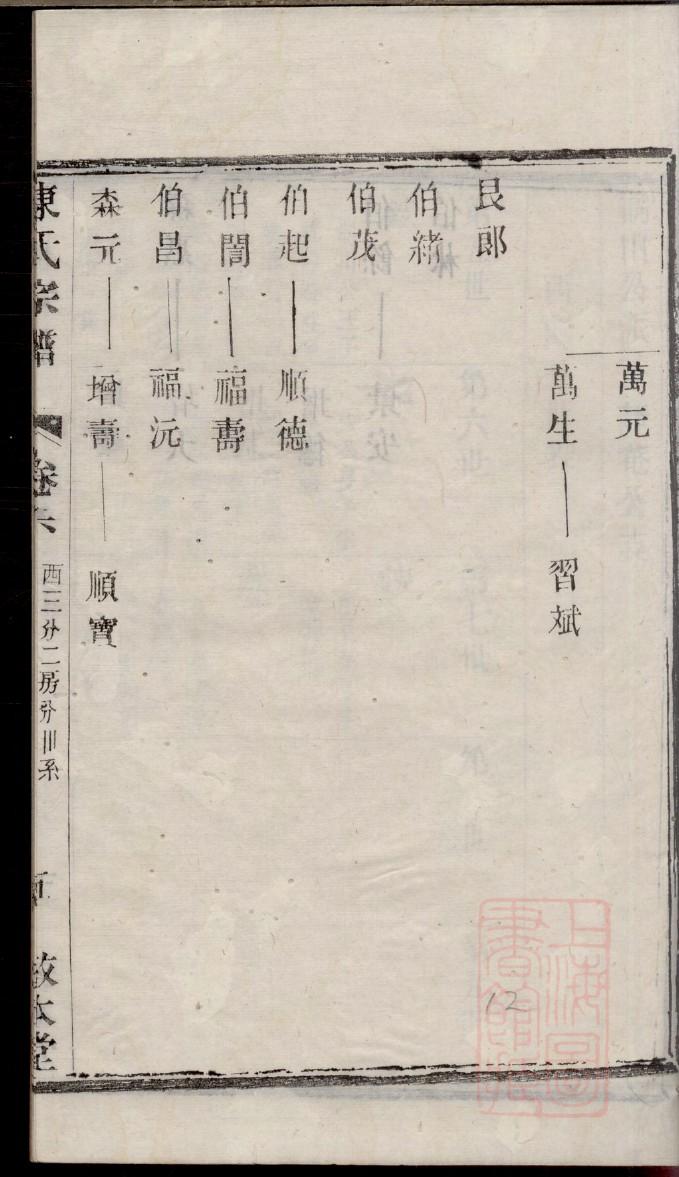 萬元
萬生 習斌
艮郎
伯緒
伯茂
伯起 順德
伯誾 福壽
伯昌 福沅
森元 增壽 順寶
陳氏宗譜 卷六 西三分二房分川系 五 敘本堂
12